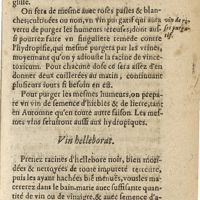 gluse.
On fera de mesme auec roses pasles & blan-
ches, cultiuées ou non, vn vin purgatif qui aura
vertu de purger les humeurs sereuses; donc aus-
si pourrez faire vn singuliere remede contre
l'hydropisie, qui mesme purgera par les vrines,
moyennant qu'on y adiouste la racine de vince-
toxicum. Pour chacune dose ce sera assez d'en
user deux cueillerées au matin, & continuer
ainsi plusieurs fois & iours en suit.
Pour purger les mesmes humeurs, on prepare
vn vin de semence d'hiebles & de lierre, tant
en Autonne qu'en toute autre saison. Les mes-
mes vins seruiront aussi aux hydropiques.
Vin helleborat.
Prenez racines d'hellebore noir, bien mon-
dées & nettoyées de toute impureté terreine,
puis les ayant hachées bié menuës, vous les ma-
cererez dans le bain-marie auec suffisante quan-
tité de vin ou de vinaigre, & auec semence d'a-
vin de ro-
ses purga-
tif.